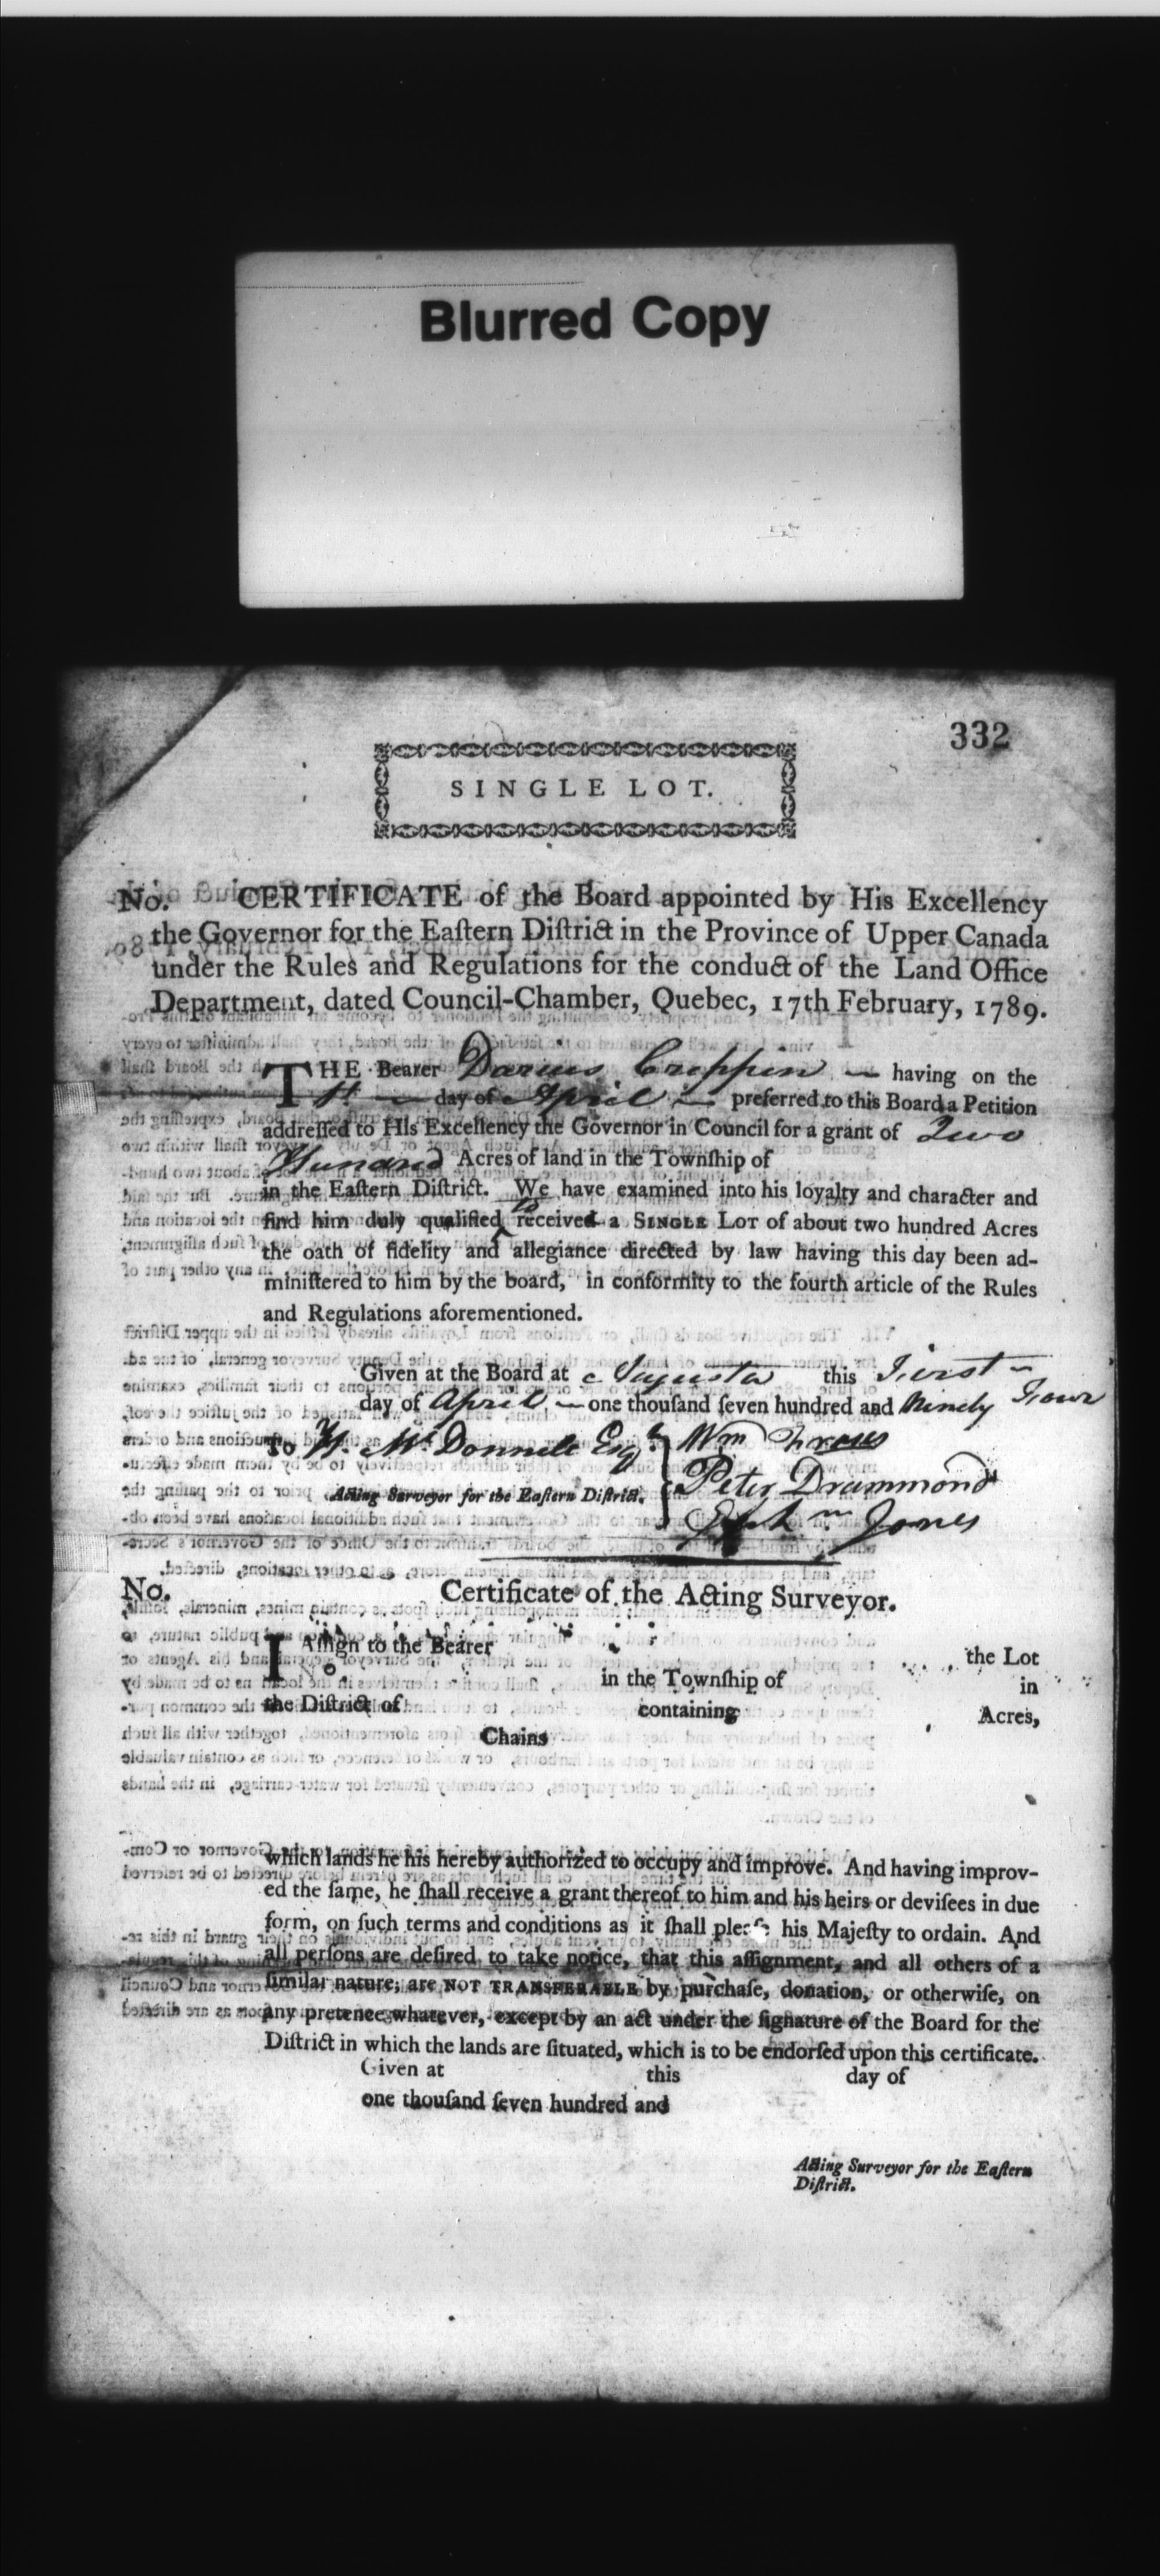 Blurred Copy
332
SINGLE LOT.
No. CERTIFICATE of the Board appointed by His Excellency
the Governor for the Eaſtern Diſtrict in the Province of Upper Canada
under the Rules and Regulations for the conduct of the Land Office
Department, dated Council-Chamber, Quebec, 17th February, 1789.
THE Bearer Darius Crippen — having on the
day of April — preferred to this Board a Petition
addreſſed to HIs Excellency the Governor in Council for a grant of Two
Hundred Acres of land in the Townſhip of
in the Eaſtern Diſtrict. We have examined into his loyalty and character and
find him duly qualified to received a SINGLE LOT of about two hundred Acres
the oath of fidelity and allegiance directed by law having this day been ad-
miniſtered to him by the board, in conformity to the fourth article of the Rules
and Regulations aforementioned.
Given at the Board at Augusta this First
day of April — one thouſand ſeven hundred and Ninety Four
To H. McDonnell Esqr. Wm Fraser
Peter Drummond
Acting Surveyor for the Eaſtern Diſtrict.
Ephm Jones
No. Certificate of the Acting Surveyor.
I Aſſign to the Bearer the Lot
No in the Townſhip of in
the Diſtrict of containing Acres,
Chains
which lands he his hereby authorized to occupy and improve. And having improv-
ed the ſame, he ſhall receive a grant thereof to him and his heirs or deviſees in due
form, on ſuch terms and conditions as it ſhall pleaſe his Majeſty to ordain. And
all perſons are deſired to take notice, that this aſſignment, and all others of a
ſimilar nature, are NOT TRANSFERABLE by purchaſe, donation, or otherwiſe, on
any pretence whatever, except by an act under the ſignature of the Board for the
Diſtrict in which the lands are ſituated, which is to be endorſed upon this certificate.
Given at this day of
one thouſand ſeven hundred and
Acting Surveyor for the Eaſtern
Diſtrict.